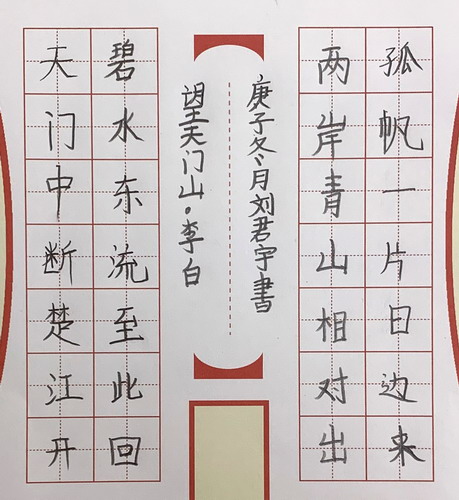 天门中断楚江开
碧水东流至此回
望天门山·李白
庚子冬月刘君宇書
两岸青山相对出
孤帆一片日边来